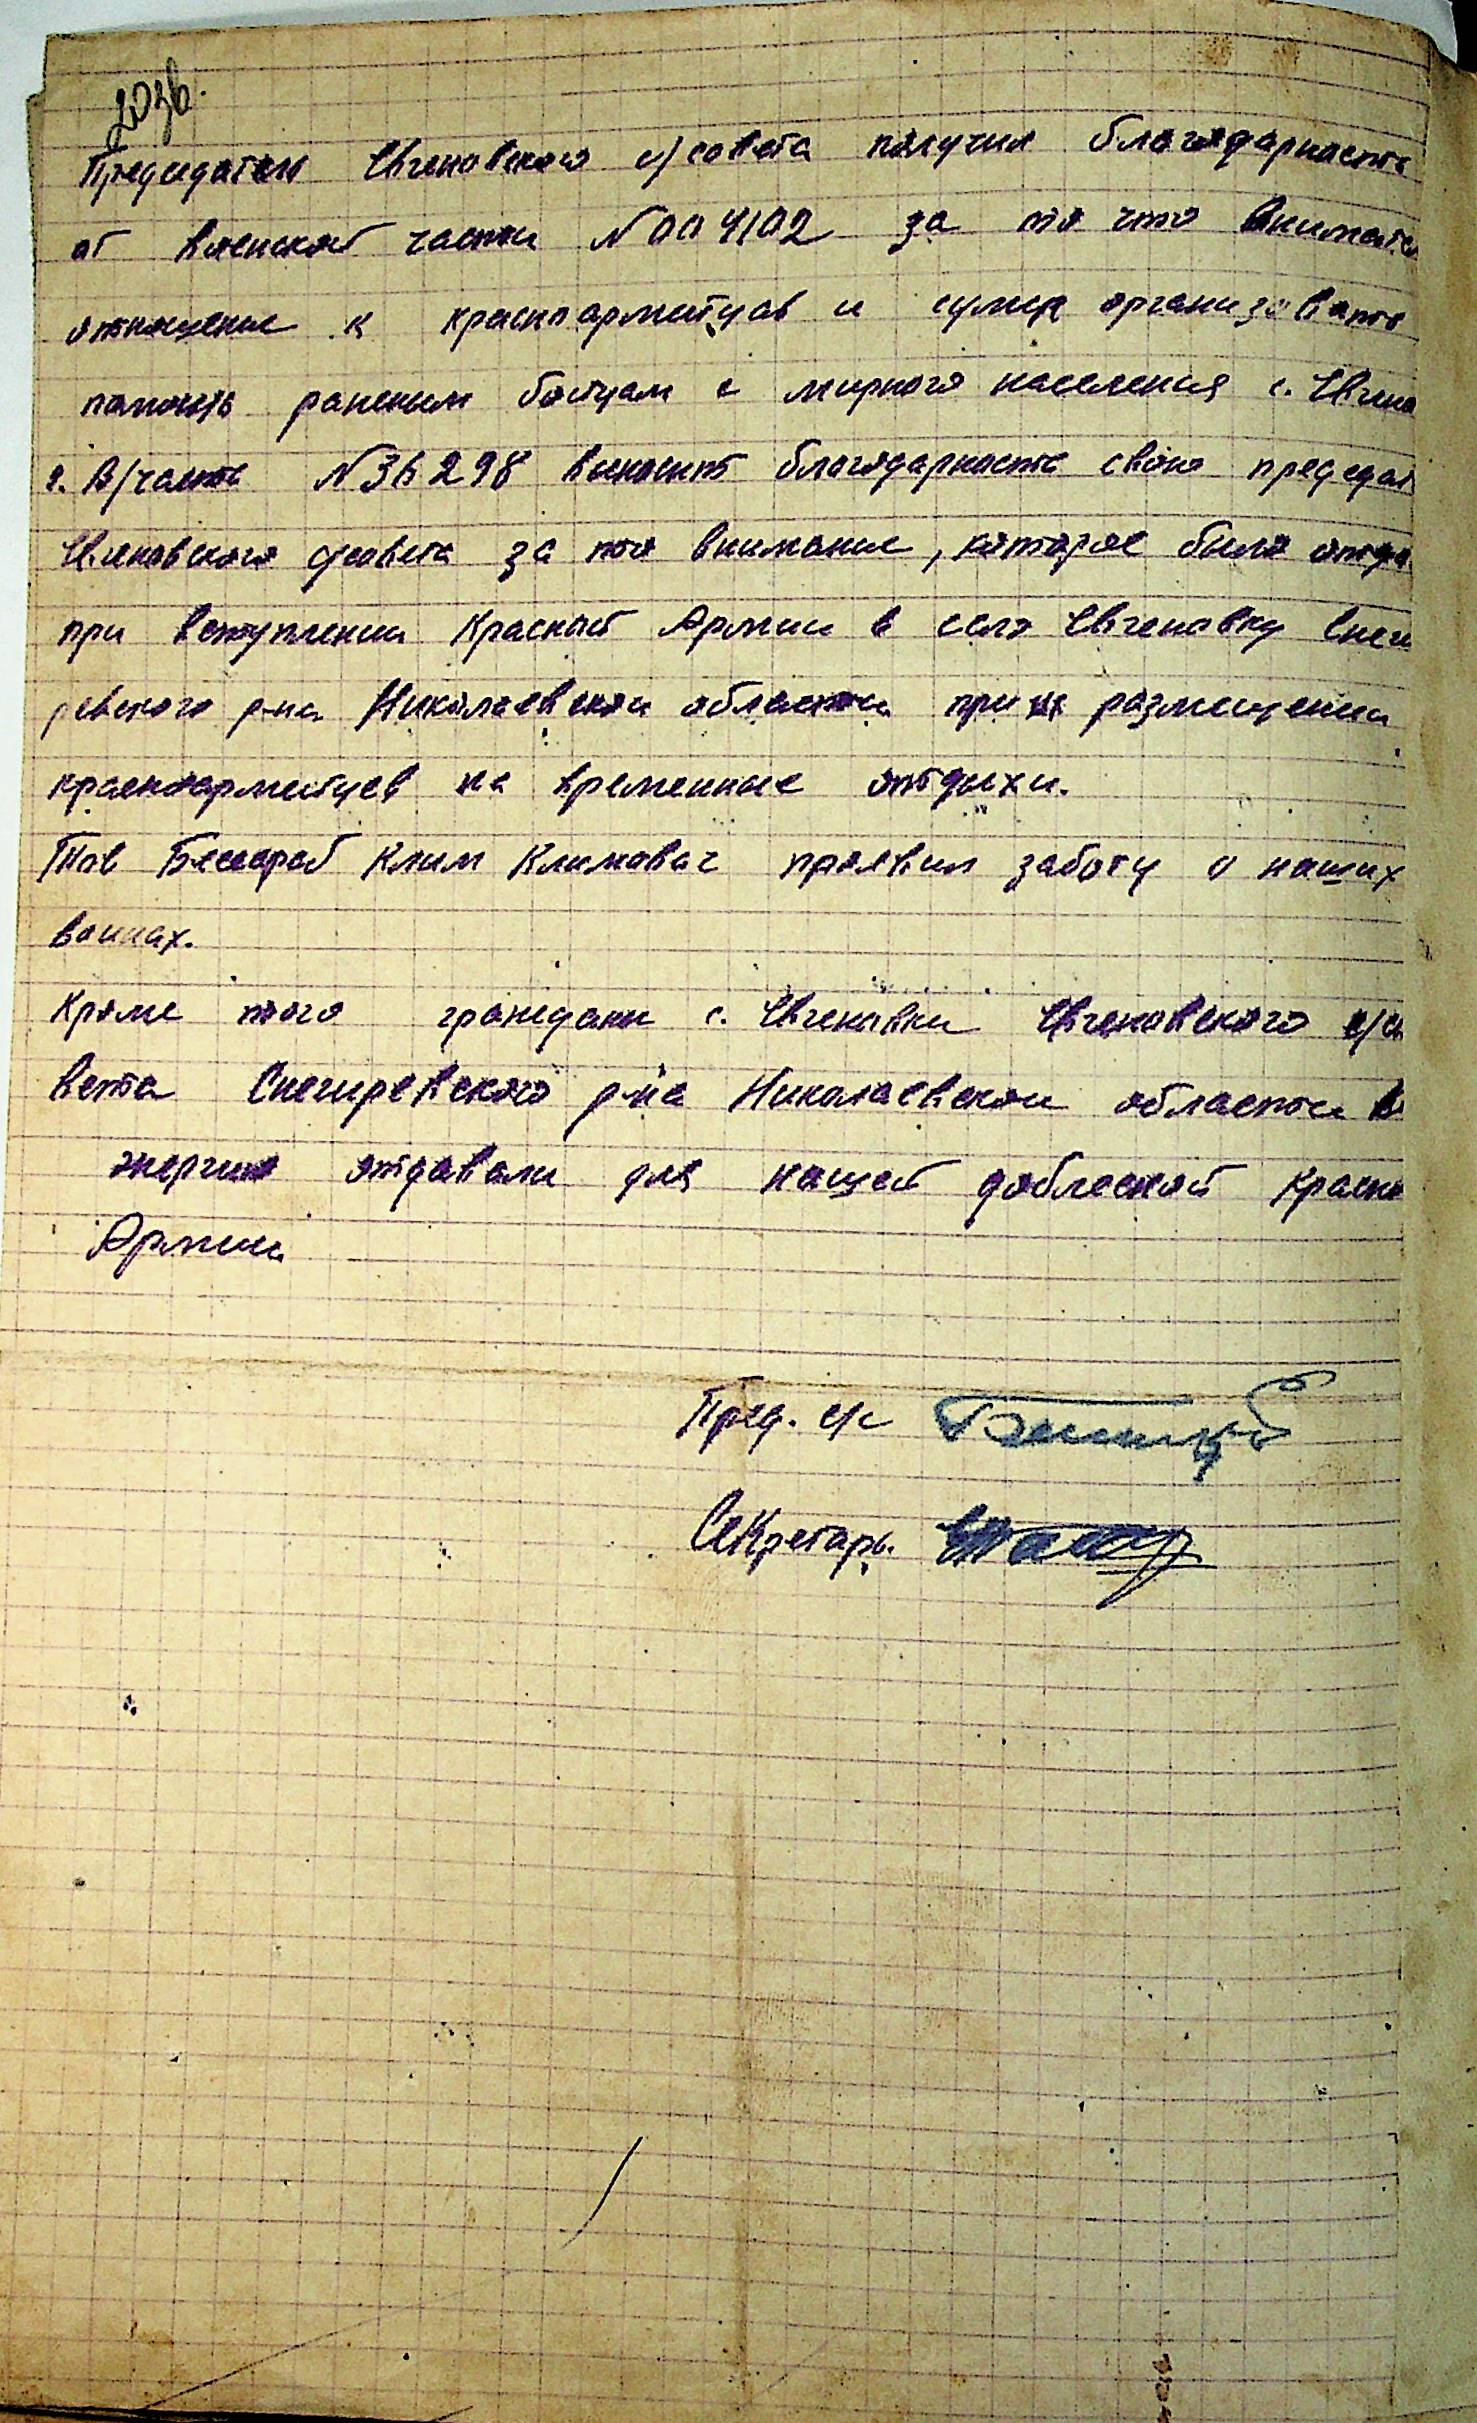 203б.
Председатель Евгеновского с/совета получил благодарность
от военской части №004102 за то что внимател
отношение к красноармейцав и сумел организовать
помощь раненым бойцам с мирного населения с. Евгено
2. В/часть №36298 выносит благодарность свою председат
Евгеновского с/совета за то внимание, которое было отда
при вступлении Красной Армии в село Евгеновку Снеги
ревского р-на Николаевской области при размещении
красноармейцев на временные отдыхи.
Тов Бессараб Клим Климович проявил заботу о наших
воинах.
Кроме того граждани с. Евгеновки Евгеновского с/со
вета Снегиревского р-на Николаевской области в
энергию отдавали для нашей доблесной Красно
Армии
Пред. с/с
Секретарь.